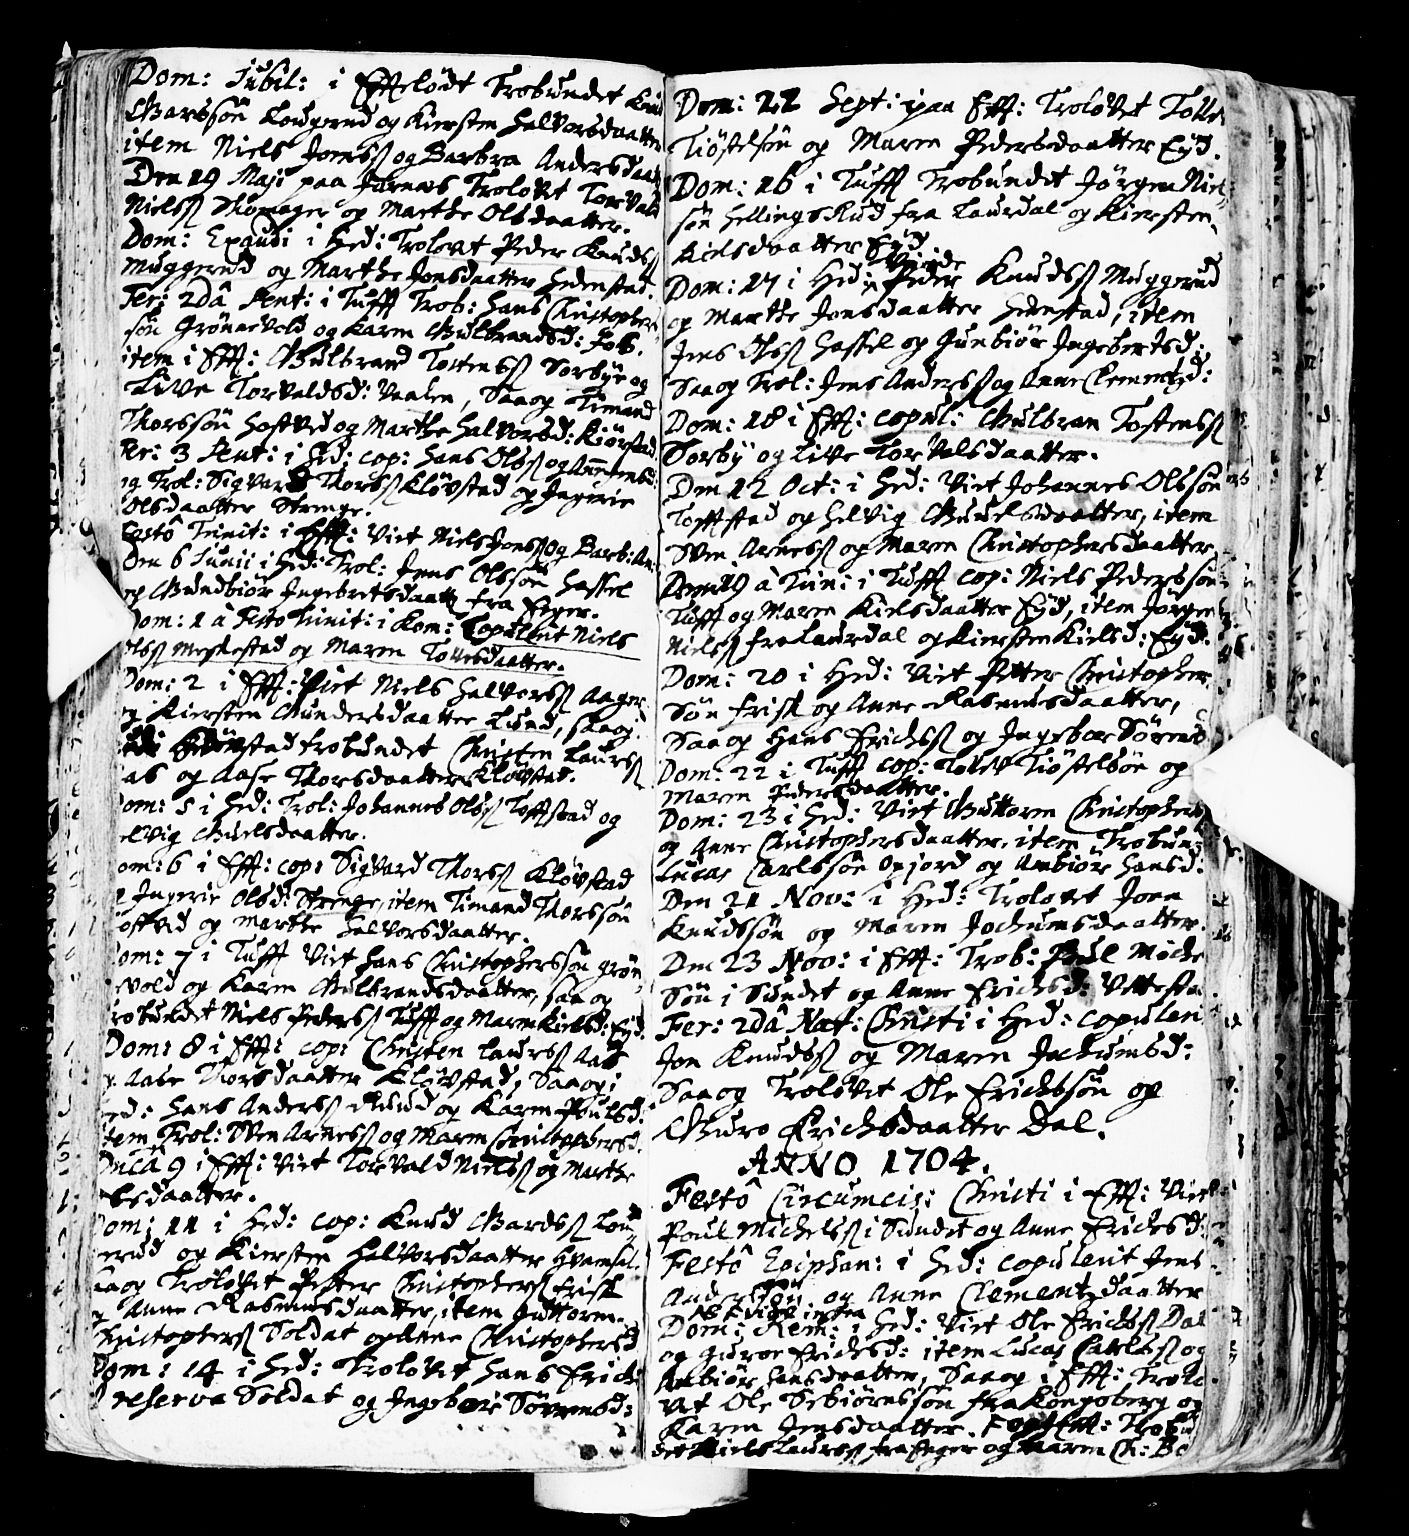 Dom: Jubil: i Efftelødt Trobundet Knud
Gvardssøn Lougerud og Kiersten Halvorsdaatter
item Niels Jonssß og Barbra Andersdaatt
Den 19 Maji paa Jarnæs Trolovet Torvald
Nielsß Skomager og Marthe Olsdaatter.
Dom: Exaudi i Hed: Trolovet Peder Knudsß
Muggerud og Marthe Jonsdaatter Hedenstad.
Fer: 2dâ Pent: i Tufft Trob: Hans Christophers
søn Grönnevold og Karen Gulbrandsd: Foss.
item i Efft: Gulbrand Tostensß Sorbye og
Live Torvaldsd: Vaalen, Saaog Timand
Thorssøn Hostved og Marthe Halvorsd: Kiörstad.
Fer: 3 Pent: i Hed: cop: Hans Olsß og
og Trol: Sigvard Thorsß Kløvstad og Ingerie
Olsdaatter Strenge.
Festô Trinit: i Efft: Viet Niels Jonsß og Barb: An:
Den 6 Junii i Hed: Trol: Jens Olssøn Hassel
og Gundbiør Ingebretsdaatt fra Eger.
Dom: 1 à Festo Trinit: i Kom: Copulent Niels
Olsß Meskestad og Maren Tovesdaatter.
Dom: 2 i Efft: Viet Niels Halvorsß Aager
og Kiersten Gundersdaatter Lund, saaog
stad trobundet Christen Laursß
Aas og Aase Thorsdaatter Kløvstad.
Dom: 5 i Hed: Trol: Johannes Olsß Toffstad og
elvig Guulsdaatter.
Dom: 6 i Efft: cop: Sigvard Thorsß Kløvstad
og Ingerie Olsd: Strenge, item Timand Thorssøn
ostved og Marthe Halvorsdaatter.
Dom: 7 i Tufft Viet Hans Christopherssøn Grøn
vold og Karen Gulbrandsdaatter, saa og
Trobundet Niels Pedersß Tufft og Maren Kielsd: Eyd.
Dom: 8 i Efft: cop: Christen Laursß Aas
og Aase Thorsdaatter Kløvstad, Saaog i
Hed: Hans Andersß Ruud og Karen Poulsd:
item Trol: Sven Arnesß og Maren Christophersd.
Domcâ 9 i Efft: Viet Torvald Nielsß og Marthe
Olsdaatter.
Dom: 11 i Hed: cop: Knud Gvardsß Lou
gerud og Kiersten Halvorsdaatter
saaog Trolovet Petter Christophersß Frisk
og Anne Rasmusdaatter, item Guttorm
Christophersß Soldat og Anne Christophersd
Dom: 14 i Hed: Trolovet Hans Erichs
reserva Soldat og Ingeborr Sørensd:
Dom: 22 Sept: ipaa Efft: Trolovet Tollev
Tiöstelsøn og Maren Pedersdaatter Eyd.
Dom: 16 i Tufft Trobundet Jørgen Niel-
søn Hellingsrud fra Laurdal og Kiersten
Kielsdaatter Eyd.
Dom: 17 i Hed: Viede Peder Knudsß Muggerud
og Marthe Jonsdaatter Hedenstad, item
Jens Olsß Hassel og Gunbiør Ingebertsd:
Saaog Trol: Jens Andersß og Anne Clementsd:
Dom: 18 i Efft: copul: Gulbran Tostensß
Sorby og Live Torvalsdaatter.
Den 12 Oct: i Hed: Viet Johannes Olssøn
Toffstad og Helvig Guulsdaatter, item
Sven Arnesß og Maren Christophersdaatter
Dom 19 à Trin: i Tufft cop: Niels Pederssøn
Tufft og Maren Kielsdaatter Eyd, item Jørgen
Nielsß fra Laurdal og Kiersten Kielsd: Eyd.
Dom: 20 i Hed: Viet Petter Christopher
søn Frisk og Anne Rasmusdaatter,
Saaog Hans Erichsß og Ingebor Sørensd
Dom: 22 i Tufft cop: Tollev Tiöstelsøn og
Maren Pedersdaatter.
Dom: 23 i Hed: Viet Guttorm Christophers
og Anne Christophersdaatter, item Trobun:
Lucas Carlssøn Opjord og Anbiør Hansd:
Den 21 Nov: i Hed: Trolovet Joen
Knudssøn og Maren Jochumsdaatter.
Den 23 Nov: i Efft: Trob: Poul Michel
Søn i Sundet og Anne Erichsd: Vettesta
Fer: 2dâ Nat: Christi i Hed: copuleri
Jon Knudsß og Maren Jochumsd:
Saaog Trolovet Ole Erichssøn og
Guro Erichsdaatter Dal.
ANNO 1704.
Festô Circumcis: Christi i Efft: Viet
Poul Michelsß i Sundet og Anne Erichsd:
Festô Epiphan: i Hed: copulerit Jens
Anderssøn og Anne Clementsdaatter
NB Vide infra
Dom: Rem: i Hed: Viet Ole Erichsß Dal
og Guroe Erichsd: item Lucas Carlsß og
Anbiør Hansdaatter, Saaog i Efft: Trolo
vet Ole Torbiørnssøn fra Kongsberg og
Karen Jensdaatter. Efft: Trobun
det Niels Laursß fra Eger og Karen Ch: Bo